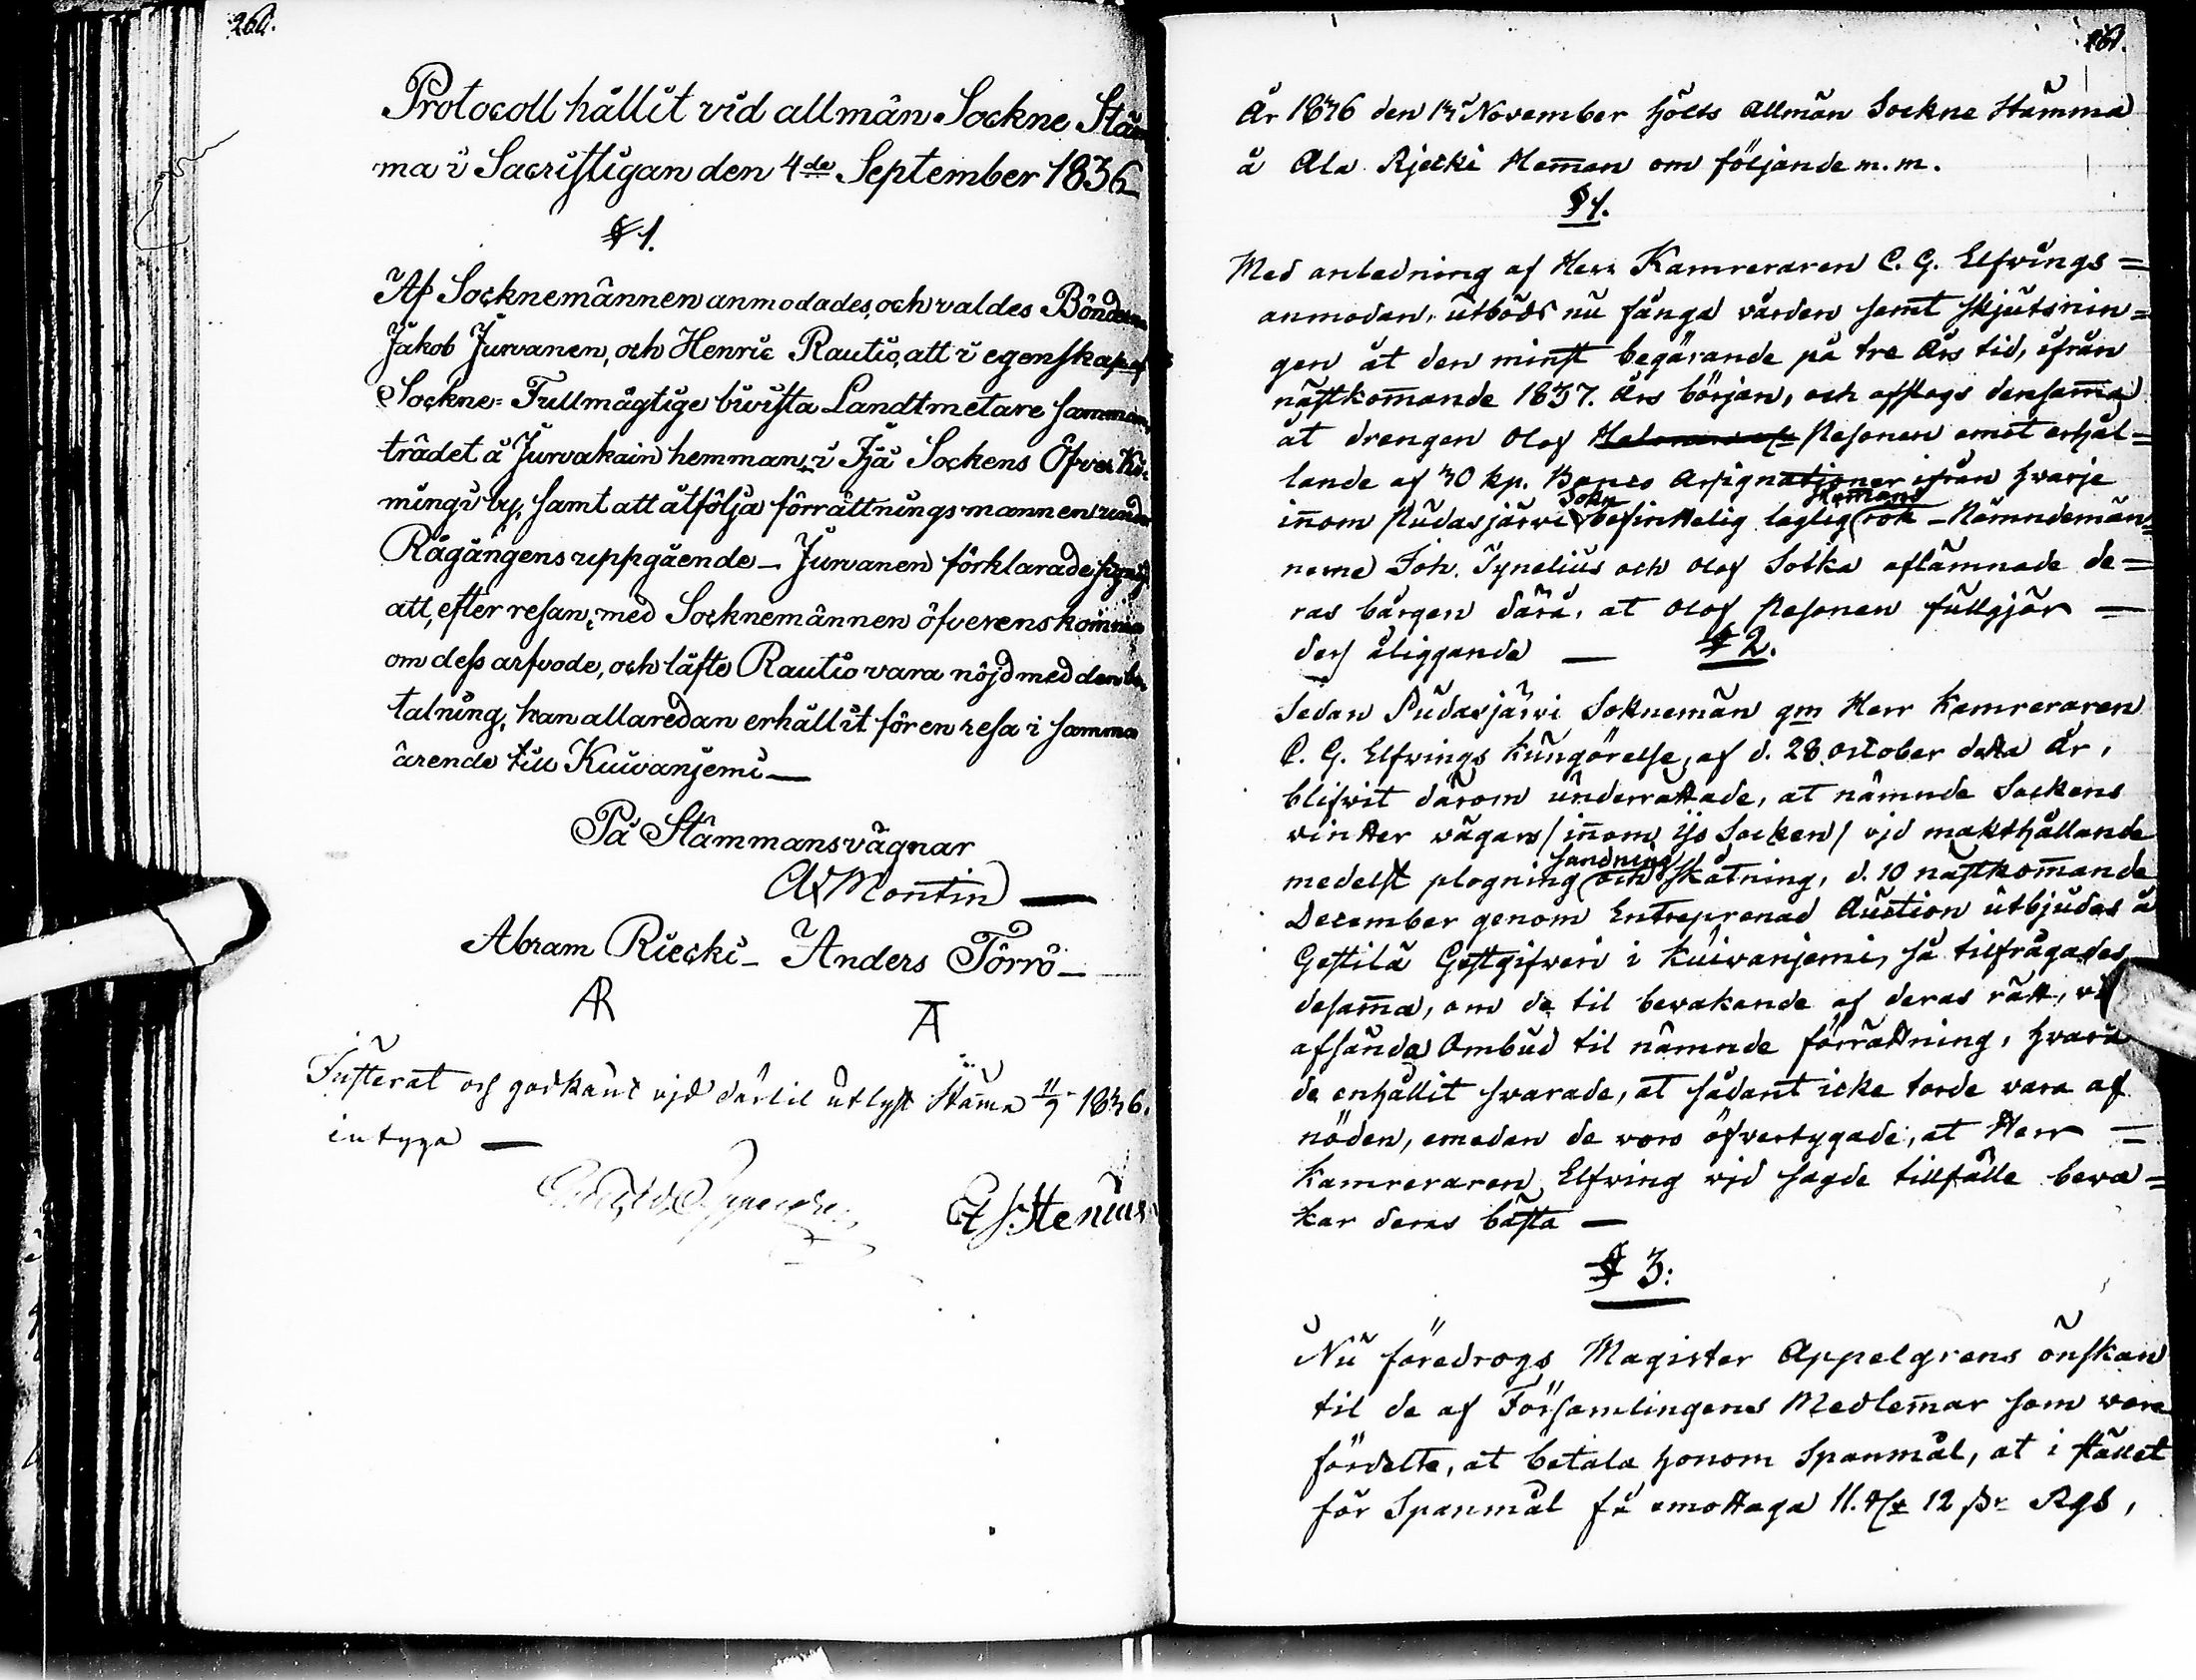 260.
Protocoll hållit vid allmän Sockne Stäm
ma i Sacristigan den 4de September 1836
§ 1.
Af Socknemännen anmodades, och valdes Bönderna
Jakob Jurvanen, och Henric Rautio, att i egenskap af
Sockne= Fullmägtige bivista Landtmetare samman
trädet å Jurvakain hemman, i Ijå Sockens Öfver Ki-
mingi by, samt att åtfölja förrättningsmannen under
Rågångens uppgående — Jurvanen förklarade sig nöjd
att, efter resan, med Socknemännen öfverenskomma
om dess arfvode, och läfte Rautio vara nöjd med den be-
talning, han allaredan erhållit för en resa i samma
ärende till Kuivanjemi —
På Stämmans vägnar
A Montin —
Abram Riecki — Anders Törrö —
AR AT
Justerat och godkänt vid därtil utlyst Stäma 11/9 1836.
intyga —
Stenius
261.
År 1836 den 13 November hölts Allmän Sockne Stämma
å Ala Rjecki Heman om följande m. m.
§ 1.
Med anledning af Herr Kamreraren C. G. Elfvings =
anmodan, utböds nu fånga vården samt skjutsnin =
gen åt den minst begärande på tre Års tid, ifrån
nästkomande 1837. Års början, och afslogs densama
åt drengen Olof Pesonen emot erhål =
lande af 30 kp. Banco Assignationer ifrån hvarje
inom Pudasjärvi Sokn befintelig laglig Hemans rök — Nämndemän =
nerne Joh. Tynelius och Olof Sotka aflämnade de =
ras bårgen därå, at Olof Pesonen fullgjör —
dess åliggande — § 2.
Sedan Pudasjärvi Sokneman gm Herr Kamreraren
C. G. Elfvings kungörelse, af d. 28 october detta År,
blifvit därom underrättade, at nämnde Sockens
vinter vägars / inom Ijo Socken / vid makthållande
medelst plogning sandning och skåtning, d. 10 nästkomande
December genom Entreprenad Auction utbjudes å
Gestilä Gestgifveri i Kuivanjemi, så tilfrågades
desama, om de til bevakande af deras rätt, vil
afsända Ombud til nämnde förrättning, hvarå
de enhällit svarade, at sådant icke torde vara af
nöden, emedan de voro öfvertygade, at Herr =
Kamreraren Elfving vid sagde tillfälle beva =
kar deras bästa —
§ 3:
Nu föredrogs Magister Appelgrens önskan
til de af Församlingens Medlemar som vore
fördelte, at betala honom Spanmål, at i stället
för Spanmål få emottaga 11. 12 Rgs,